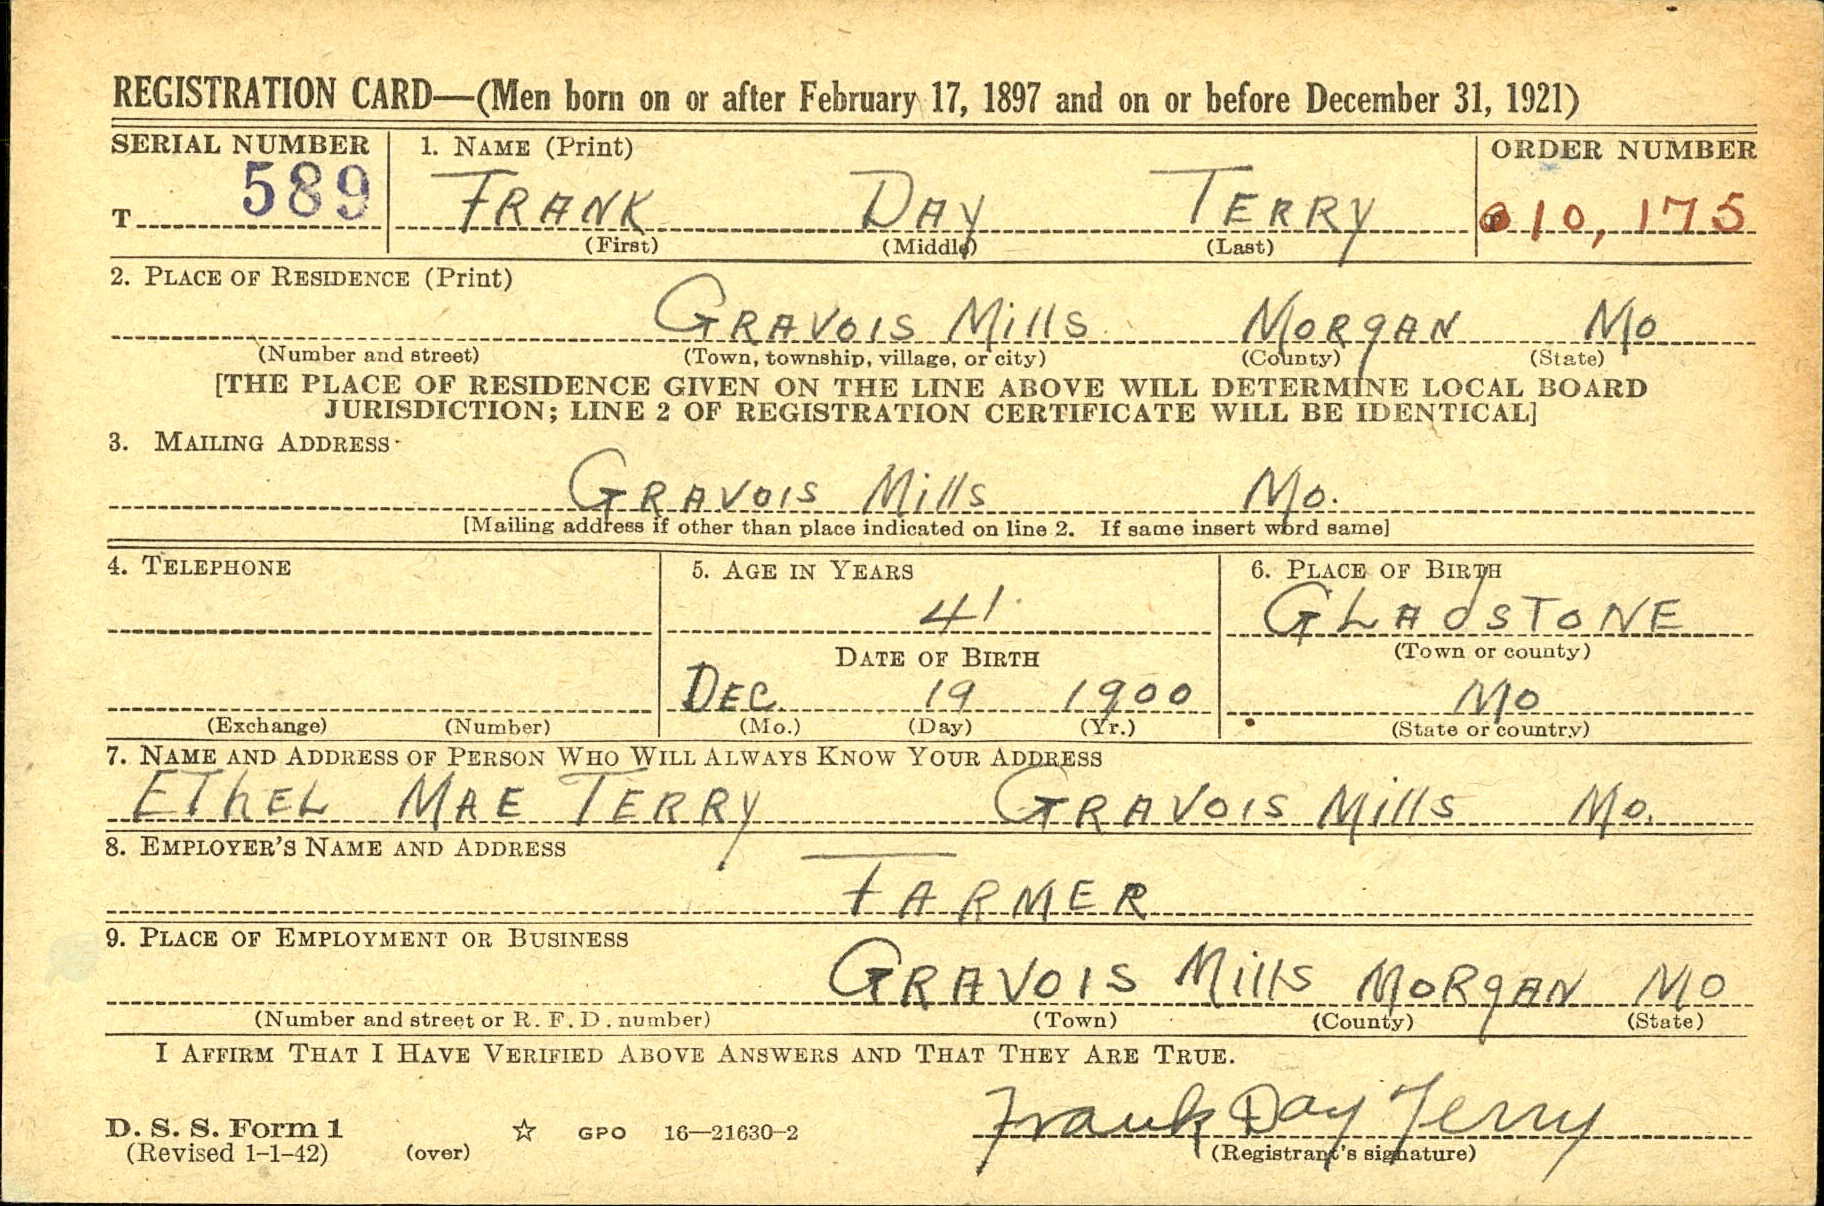 REGISTRATION CARD—(Men born on or after February 17, 1897 and on or before December 31, 1921)
SERIAL NUMBER 1. NAME (Print) ORDER NUMBER
T 589 FRANK DAY TERRY 10,175
(First) (Middle) (Last)
2. PLACE OF RESIDENCE (Print)
GRAVOIS Mills MORGAN Mo
(Number and street) (Town, township, village, or city) (County) (State)
[THE PLACE OF RESIDENCE GIVEN ON THE LINE ABOVE WILL DETERMINE LOCAL BOARD
JURISDICTION; LINE 2 OF REGISTRATION CERTIFICATE WILL BE IDENTICAL]
3. MAILING ADDRESS
GRAVOIS Mills Mo.
[Mailing address if other than place indicated on line 2. If same insert word same]
4. TELEPHONE 5. AGE IN YEARS 6. PLACE OF BIRTH
41 GLADSTONE
DATE OF BIRTH (Town or county)
DEC. 19 1900 MO
(Exchange) (Number) (Mo.) (Day) (Yr.) (State or country)
7. NAME AND ADDRESS OF PERSON WHO WILL ALWAYS KNOW YOUR ADDRESS
EThEL MAE TERRY GRAVOIS Mills Mo.
8. EMPLOYER'S NAME AND ADDRESS
FARMER
9. PLACE OF EMPLOYMENT OR BUSINESS
GRAVOIS Mills MORGAN MO
(Number and street or R. F. D. number) (Town) (County) (State)
I AFFIRM THAT I HAVE VERIFIED ABOVE ANSWERS AND THAT THEY ARE TRUE.
Frank Day Terry
D. S. S. Form 1
(Revised 1-1-42) (over) ☆ GPO 16—21630-2 (Registrant's signature)